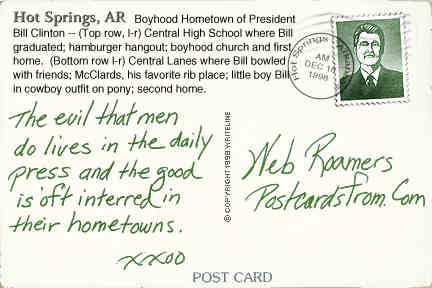 Hot Springs, AR Boyhood Hometown of President
Bill Clinton -- (Top row, l-r) Central High School where Bill
graduated; hamburger hangout; boyhood church and first
home. (Bottom row l-r) Central Lanes where Bill bowled
with friends; McClards, his favorite rib place; little boy Bill
in cowboy outfit on pony; second home.
Hot Springs, Arkansas
AM
DEC 16
1998
The evil that men
do lives in the daily
press and the good
is oft interred in
their hometowns.
xxoo
© COPYRIGHT 1998 WRITELINE
Web Roamers
PostcardsFrom.Com
POST CARD